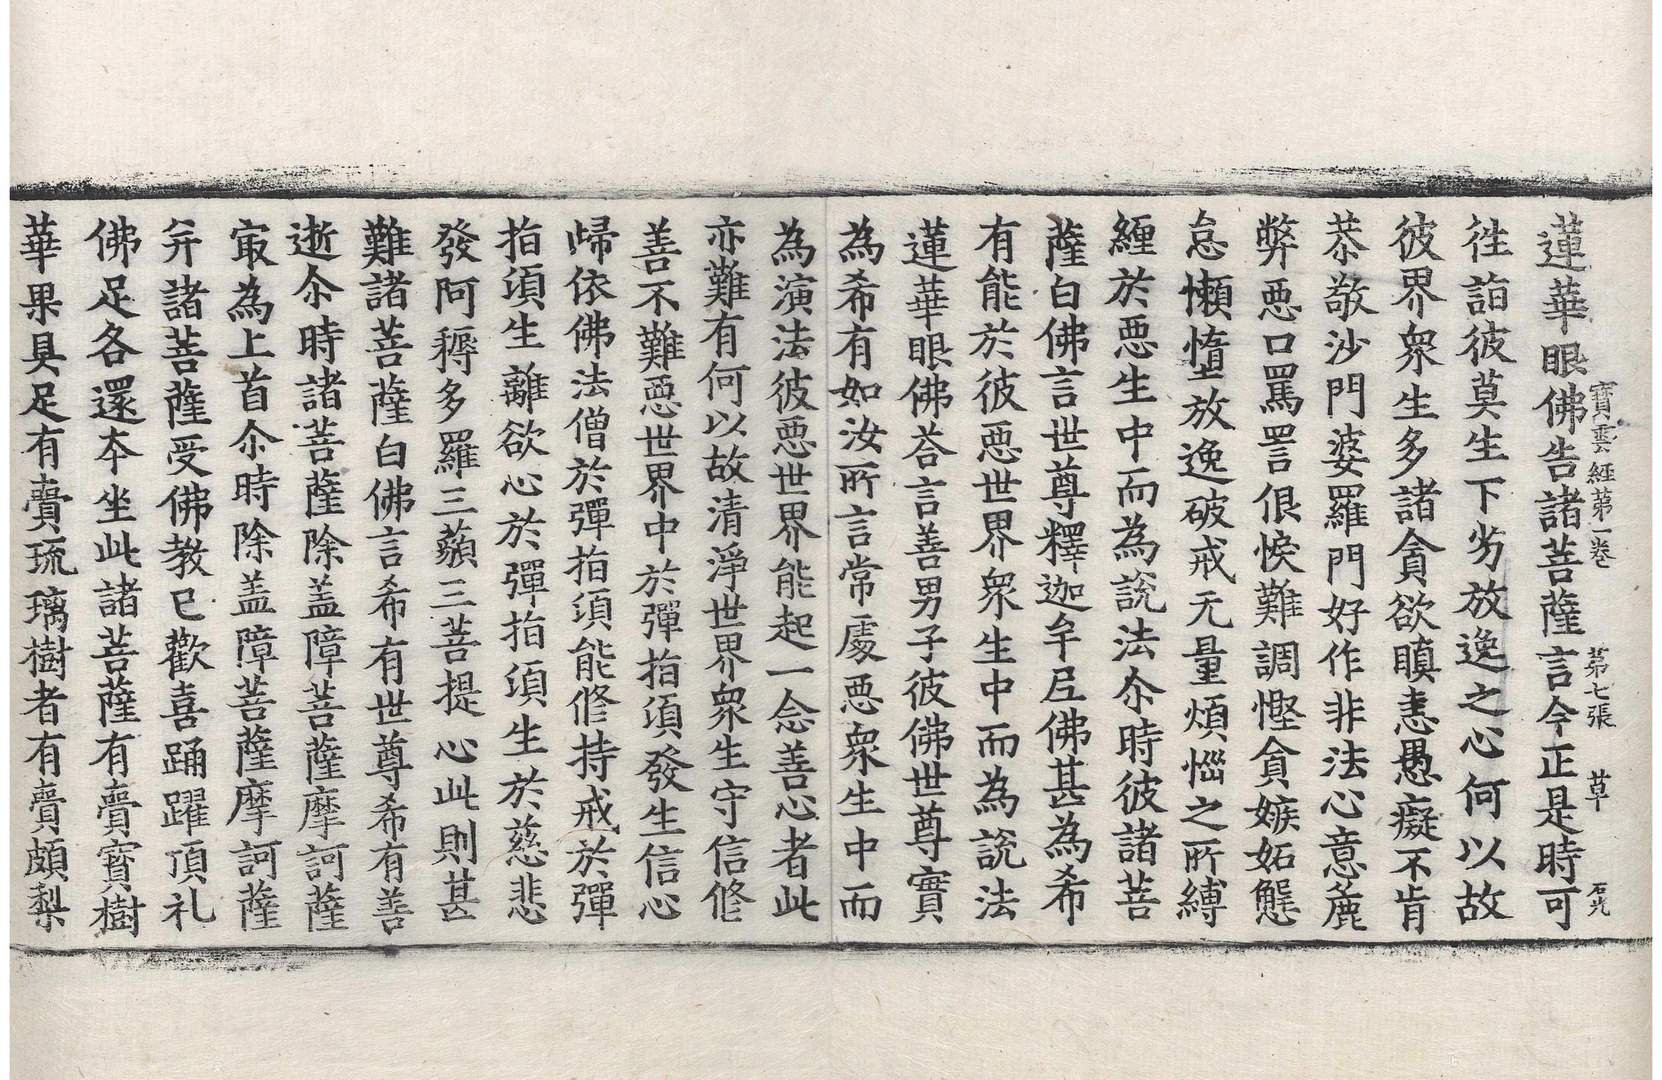 寶雲經苐一卷　苐七張　草　石光
蓮華眼佛告諸菩薩言今正是時可
徃詣彼莫生下劣放逸之心何以故
彼界衆生多諸貪欲瞋恚愚癡不肯
恭敬沙門婆羅門好作非法心意麁
弊惡口罵詈佷悷難調慳貪嫉妬懸
怠懶惰放逸破戒无量煩惱之所縛
纏於惡生中而為說法尒時彼諸菩
薩白佛言世尊釋迦牟尼佛甚為希
有能於彼惡世界衆生中而為說法
蓮華眼佛荅言善男子彼佛世尊實
為希有如汝所言常處惡衆生中而
為演法彼惡世界能起一念善心者此
亦難有何以故清淨世界衆生守信修
善不難惡世界中於彈指須發生信心
歸依佛法僧於彈指須能修持戒於彈
指須生離欲心於彈指須生於慈悲
發阿耨多羅三藐三菩提心此則甚
難諸菩薩白佛言希有世尊希有善
逝尒時諸菩薩除盖障菩薩摩訶薩
㝡為上首尒時除盖障菩薩摩訶薩
并諸菩薩受佛教已歡喜踊躍頂礼
佛足各還本坐此諸菩薩有賣寳樹
華果具足有賣琉璃樹者有賣頗梨